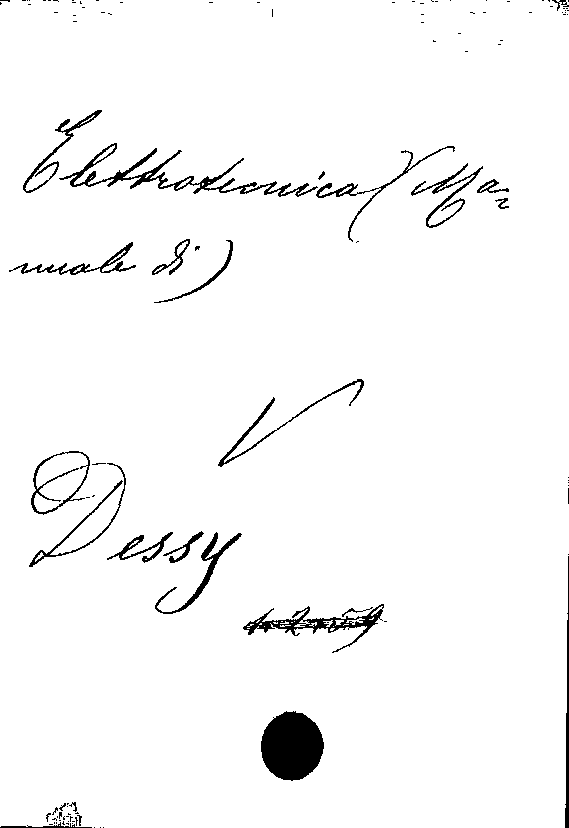 Elettrotecnica (Ma=
nuale di)
V
Dessy